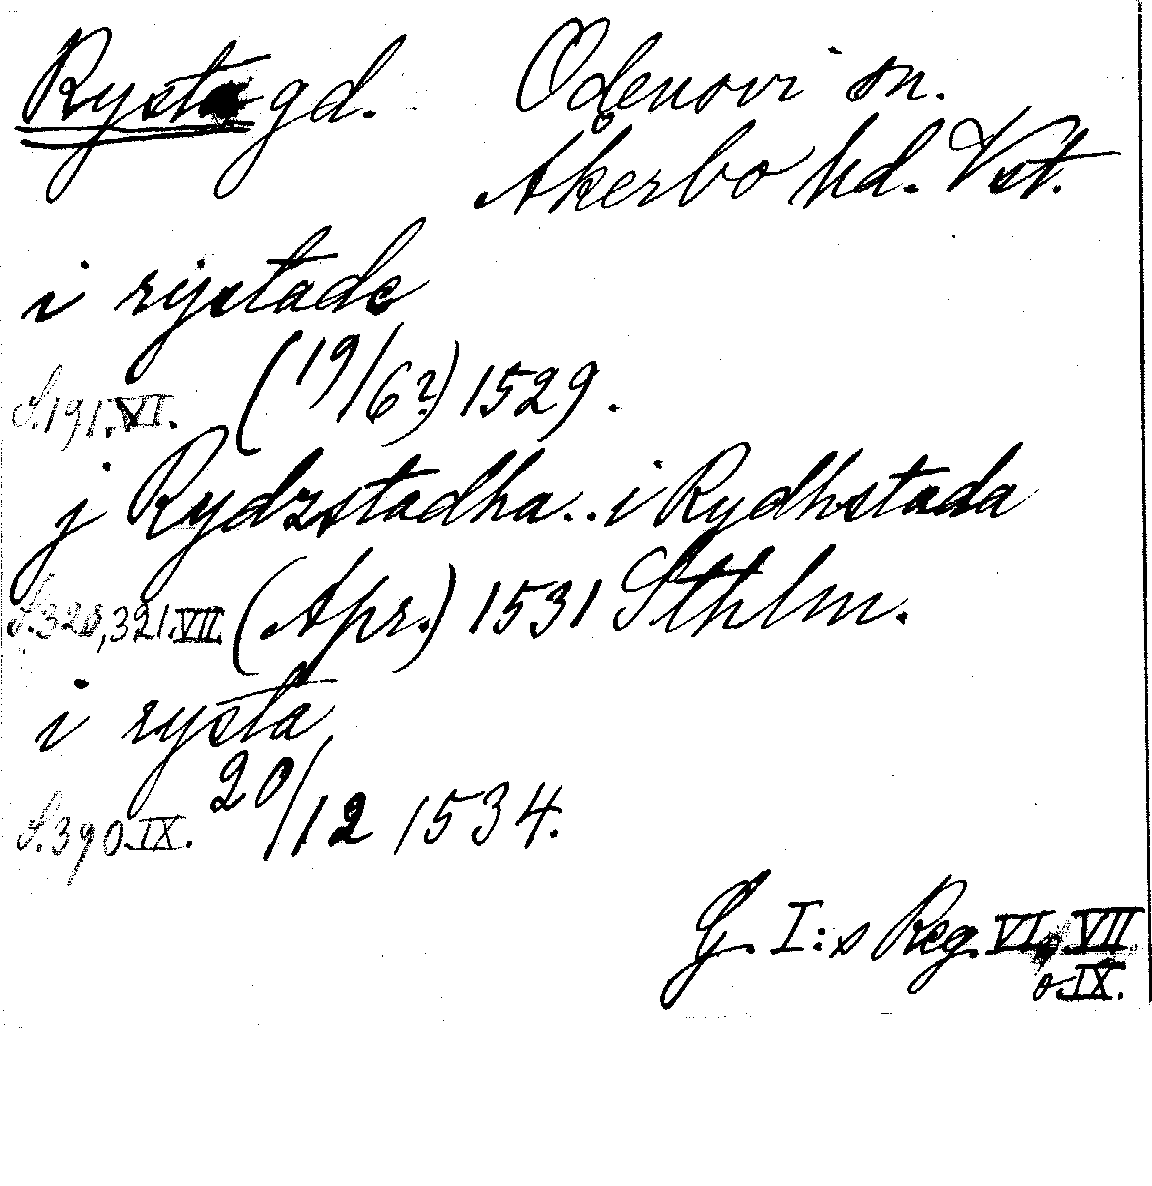 Rysta gd. Odensvi sn.
Åkerbo hd. Vst.
i rystade
S.191.VI. (19/6?) 1529.
j Rydzstadha.. i Rydhstada
S.320,321.VII. (Apr.) 1531 Sthlm.
i rysta
S.390.IX. 20/12 1534.
G. I:s Reg. VI, VII
o. IX.